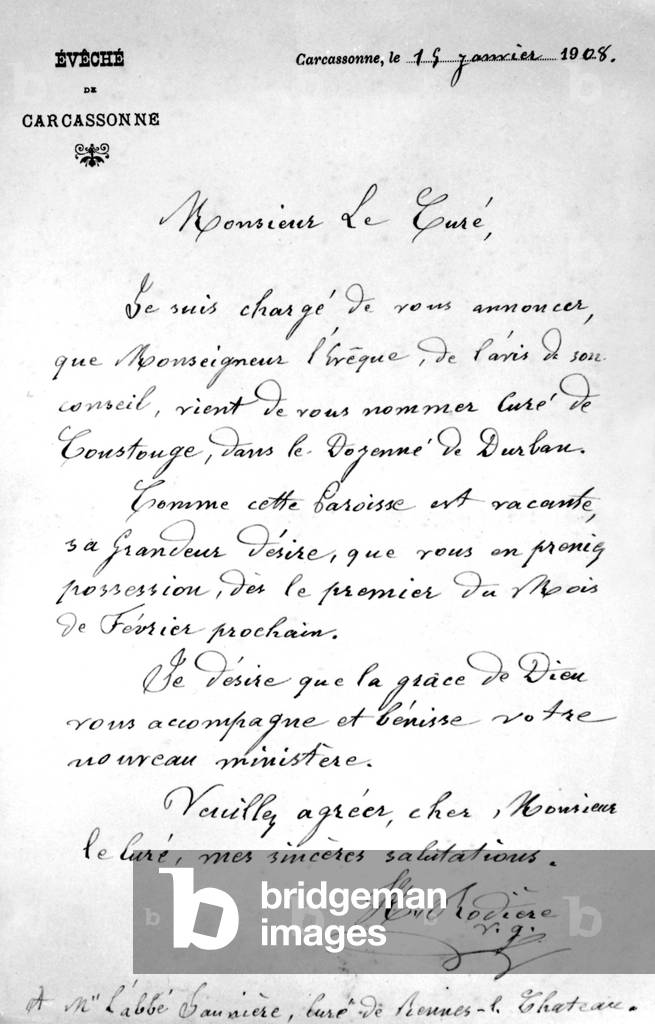 ÉVÊCHÉ
DE
CARCASSONNE
Carcassonne, le 15 janvier 1908.
Monsieur Le Curé,
Je suis chargé de vous annoncer,
que Monseigneur l'Évêque, de l'avis de son
conseil, vient de vous nommer Curé de
Coustouge, dans le Doyenné de Durban.
Comme cette Paroisse est vacante,
sa Grandeur désire, que vous en preniez
possession, dès le premier du Mois
de Février prochain.
Je désire que la grâce de Dieu
vous accompagne et bénisse votre
nouveau ministère.
Veuillez agréer, cher Monsieur
le Curé, mes sincères salutations.
Rodière
v. g.
A Mr L'abbé Saunière, curé de Rennes-le Chateau.
b bridgeman
images